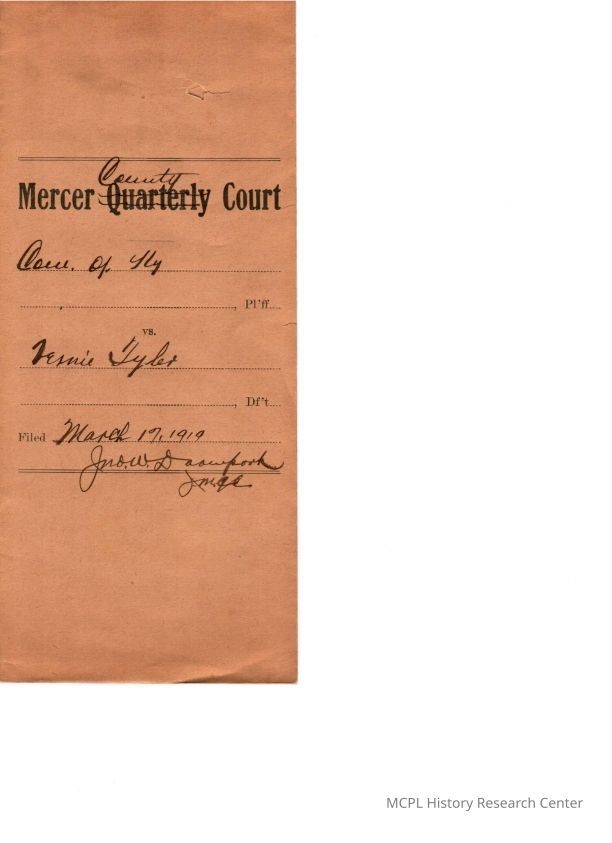 County
Mercer Quarterly Court
Com. of Ky
Pl'ff.
vs.
Vernie Tyler
Df't.
Filed March 17, 1919
Jno. W. Davenport
MCPL History Research Center